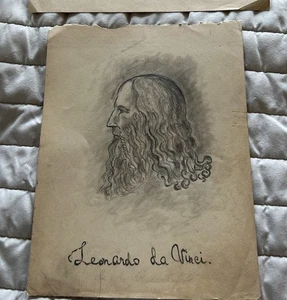 Leonardo da Vinci.